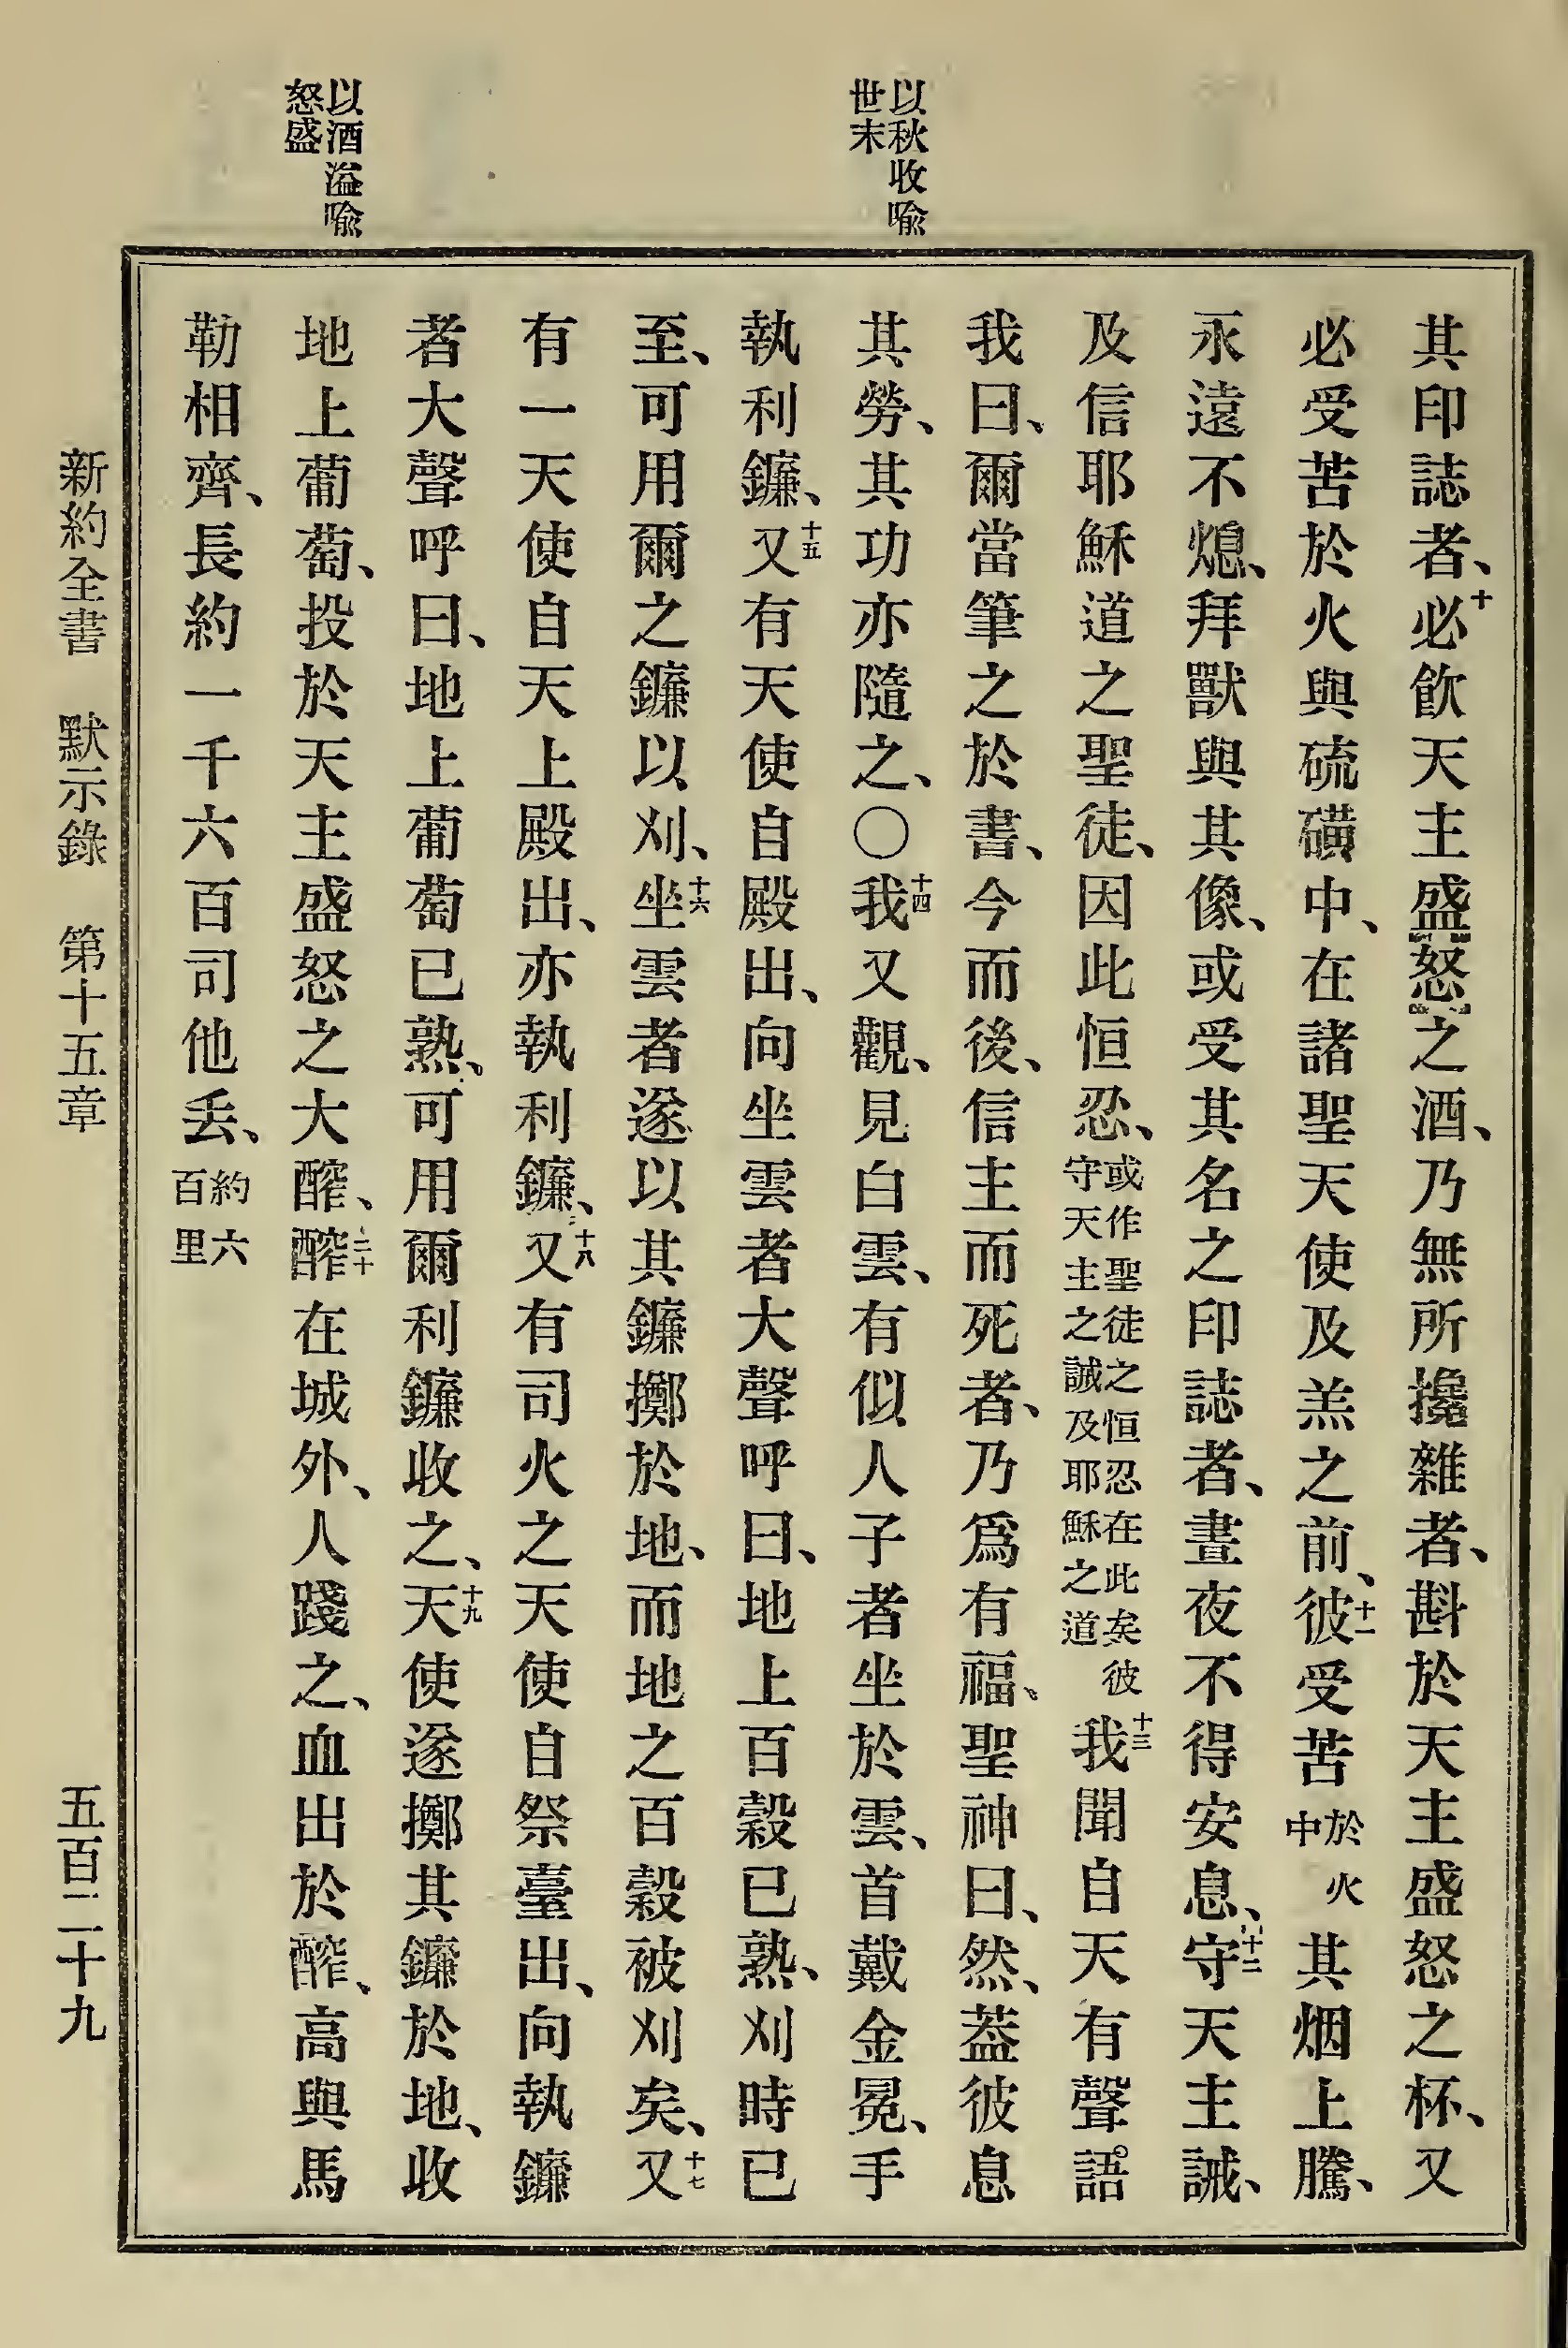 以秋收喩
世末
以酒溢喩
怒盛
其印誌者、十必飮天主盛怒之酒、乃無所攙雜者、斟於天主盛怒之杯、又
必受苦於火與硫磺中、在諸聖天使及羔之前、十一彼受苦於火中其烟上騰、
永遠不熄、拜獸與其像、或受其名之印誌者、晝夜不得安息、十二守天主誡、
及信耶穌道之聖徒、因此恒忍、或作聖徒之恒忍在此矣彼守天主之誡及耶穌之道十三我聞自天有聲語
我曰、爾當筆之於書、今而後、信主而死者、乃爲有福、聖神曰、然、蓋彼息
其勞、其功亦隨之、〇十四我又觀、見白雲、有似人子者坐於雲、首戴金冕、手
執利鐮、十五又有天使自殿出、向坐雲者大聲呼曰、地上百穀已熟、刈時已
至、可用爾之鐮以刈、十六坐雲者遂以其鐮擲於地、而地之百穀被刈矣、十七又
有一天使自天上殿出、亦執利鐮、十八又有司火之天使自祭臺出、向執鐮
者大聲呼曰、地上葡萄已熟、可用爾利鐮收之、十九天使遂擲其鐮於地、收
地上葡萄、投於天主盛怒之大醡、二十醡在城外、人踐之、血出於醡、高與馬
勒相齊、長約一千六百司他丢、約六百里
新約全書 默示錄 第十五章 五百二十九